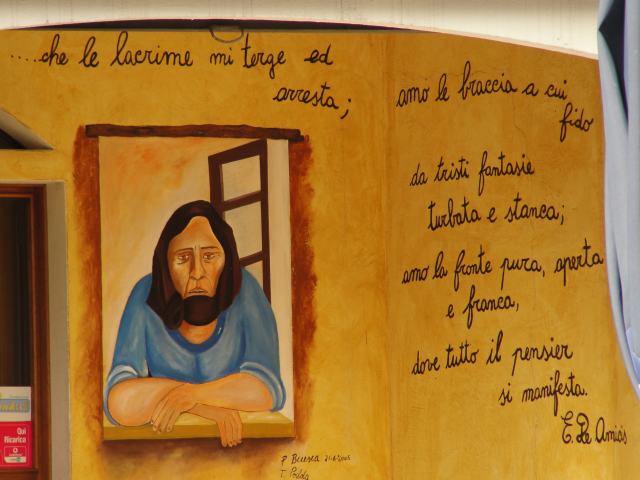 ....che le lacrime mi terge ed
arresta;
amo le braccia a cui
fido
da tristi fantasie
turbata e stanca;
amo la fronte pura, aperta
e franca,
dove tutto il pensier
si manifesta.
E. De Amicis
Qui
Ricarica